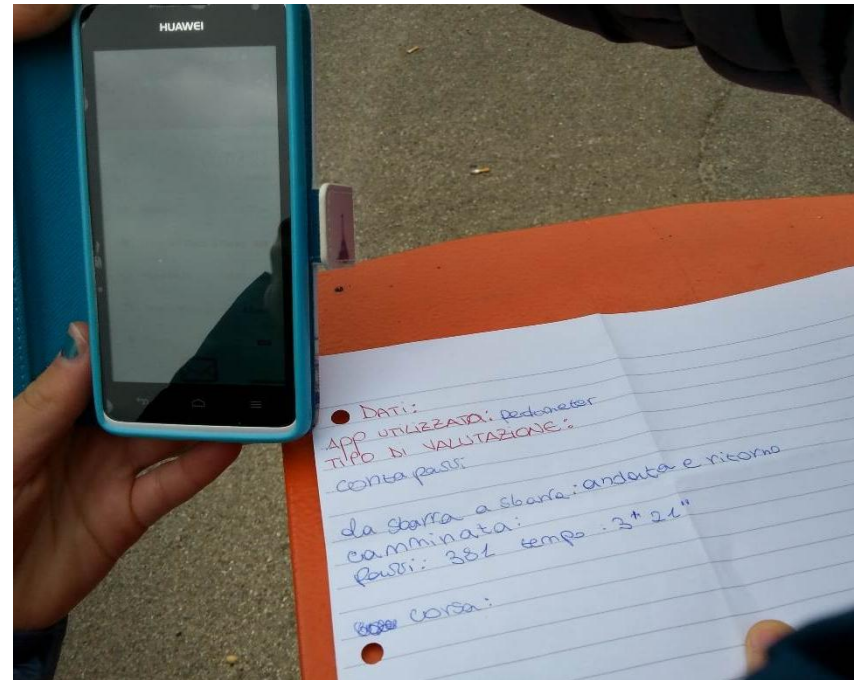 HUAWEI
DATI:
APP UTILIZZATA: pedometer
TIPO DI VALUTAZIONE:
conta passi
da sbarra a sbarra: andata e ritorno
camminata:
passi: 381 tempo: 3" 21"
corsa: